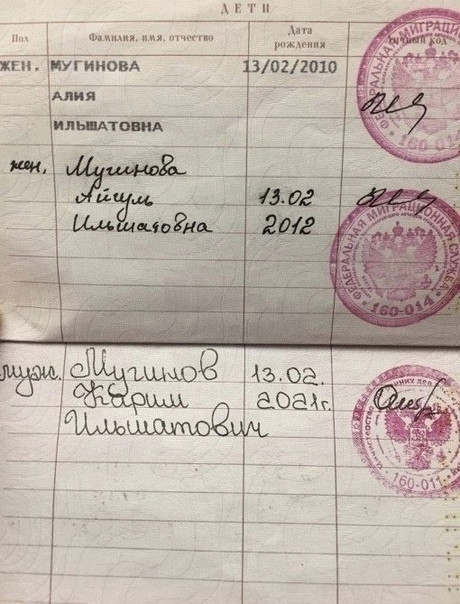 ДЕТИ
Пол Фамилия, имя, отчество Дата рождения личный код
ЖЕН. МУГИНОВА 13/02/2010
АЛИЯ
ИЛЬШАТОВНА
ФЕДЕРАЛЬНАЯ МИГРАЦИОН
160-014
жен. Мугинова
Айгуль 13.02
Ильшатовна 2012
ФЕДЕРАЛЬНАЯ МИГРАЦИОННАЯ СЛУЖБА
160-014
муж. Мугинов 13.02.
Карим 2021г.
Ильшатович
160-011